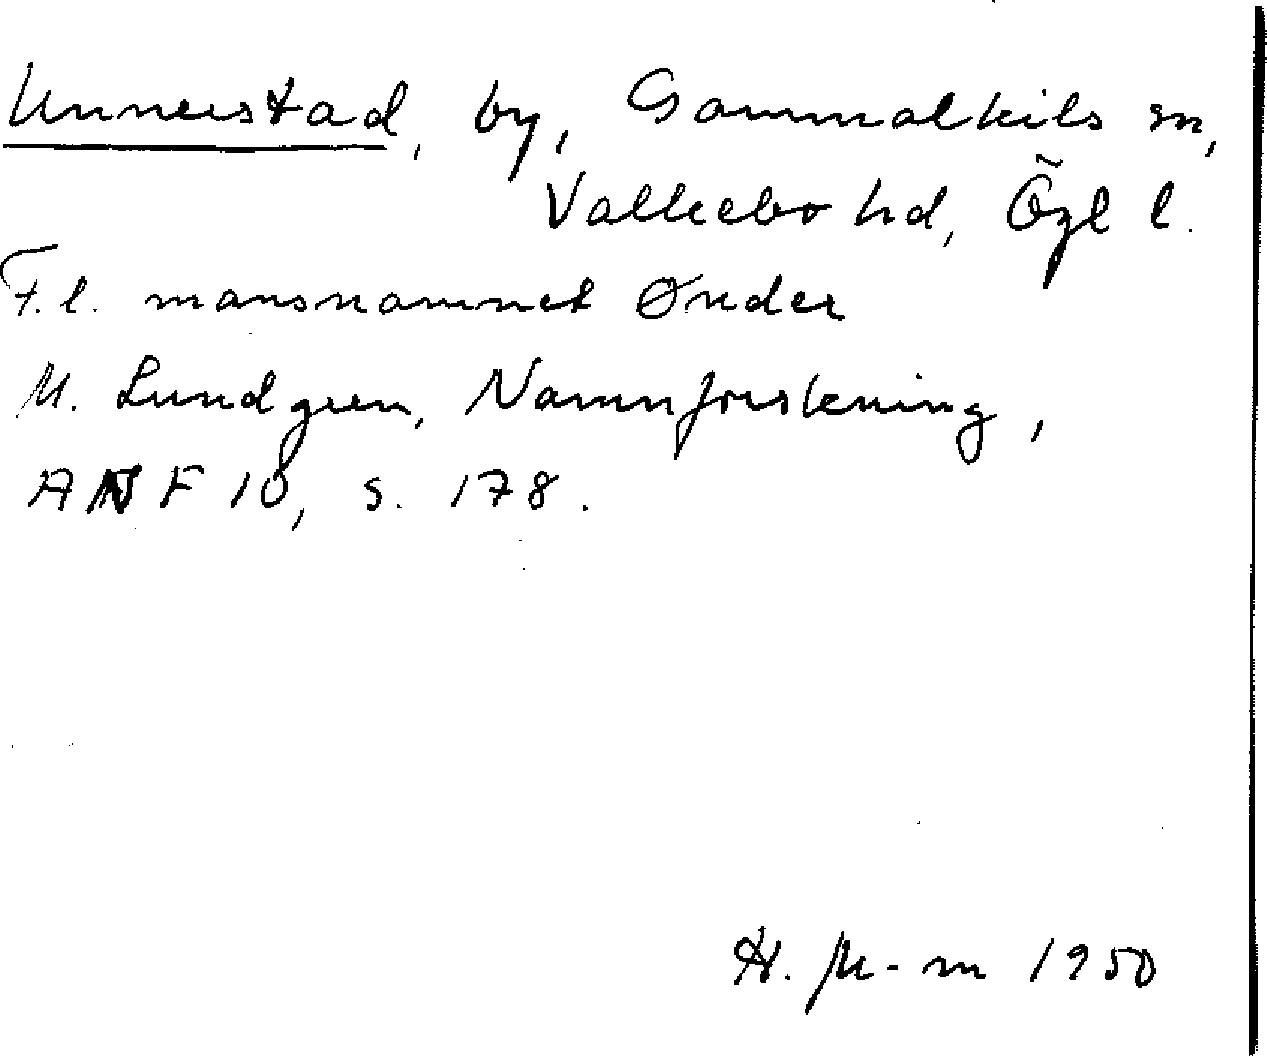 Unnerstad, by, Gammalkils sn,
Valkebo hd, Ögl l.
T.l. mansnamnet Ønder
M. Lundgren, Namnforskning,
ANF 10, s. 178.
H. M-m 1950